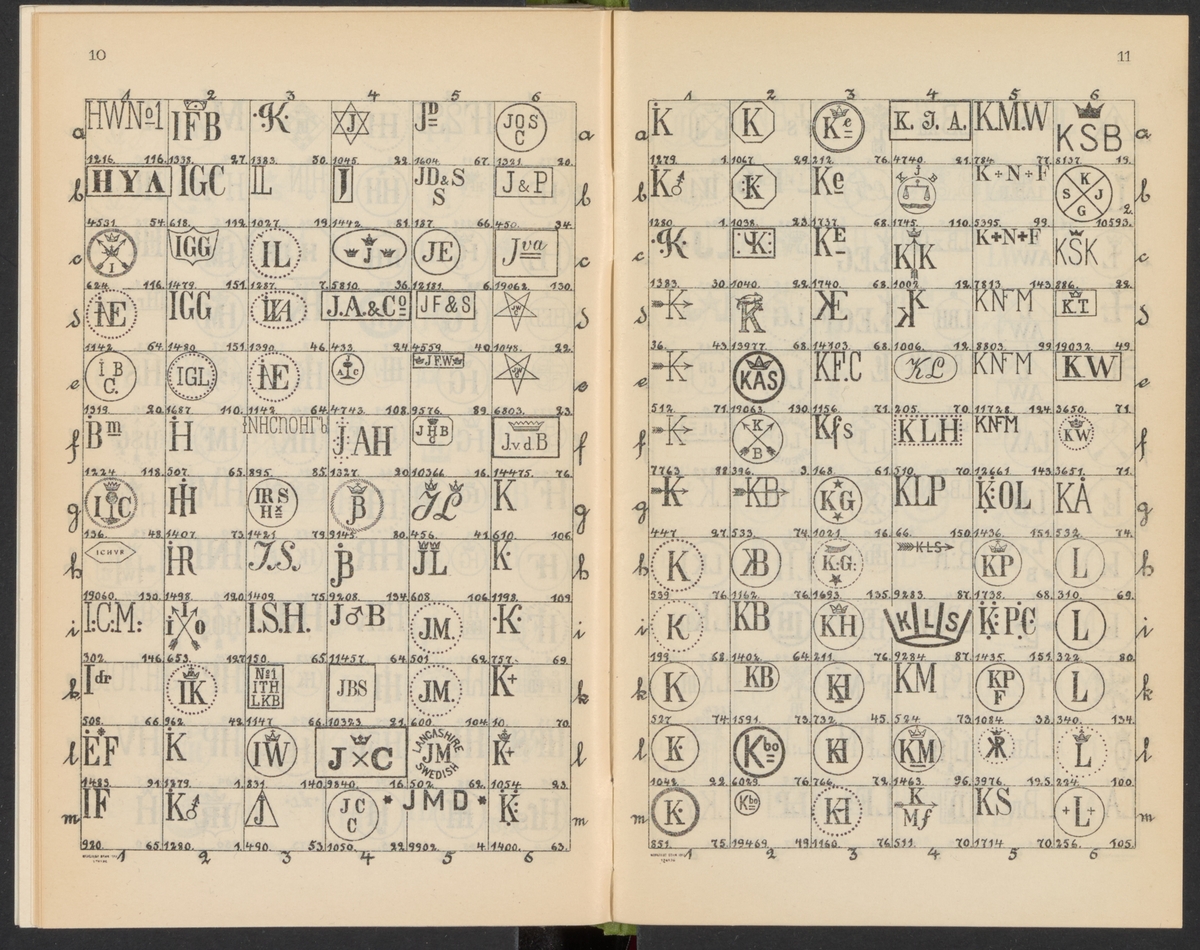 10
1 2 3 4 5 6
a HWNo1 IFB ·K· J JD JOS C a
1216. 116. 1338. 27. 1383. 30. 1045. 22. 1604. 67. 1321. 20.
b HYA IGC IL J JD&S S J&P b
4531. 54. 618. 119. 1027. 19. 1442. 81. 187. 66. 450. 34.
c I IGG IL J JE Jva c
624. 116. 1479. 151. 1287. 7. 5810. 36. 12181. 6. 19062. 130.
d NE IGG J.A.&Co JF&S d
1142. 64. 1480. 151. 1390. 46. 433. 24. 4559. 40. 1048. 22.
e I B C. IGL NE J c J.F.W. e
1319. 20. 1687. 110. 1142. 64. 4743. 108. 9576. 89. 6803. 23.
f Bm H JAH JHB C J.v.d B f
1224. 118. 507. 65. 895. 85. 1327. 20. 10366. 16. 14475. 76.
g IC IH IRS Hx JB JL K g
136. 48. 1407. 73. 1421. 79. 9145. 80. 456. 41. 610. 106.
h ICHVR HR J.S. JB JL K· h
19060. 130. 1498. 120. 1409. 75. 9208. 134. 608. 106. 1198. 109.
i I:C.M: I I O I.S.H. J♂B JM. ·K· i
302. 146. 653. 127. 150. 65. 11457. 64. 501. 62. 757. 69.
k Idr IK No1 ITH LKB JBS JM. K+ k
508. 66. 962. 42. 1147. 66. 10323. 21. 600. 104. 10. 70.
l EF K IW J×C LANCASHIRE JM SWEDISH K+ l
1483. 91. 1279. 1. 831. 140. 9840. 16. 502. 62. 1054. 23.
m IF K♂ J JC C *JMD* K: m
920. 65. 1280. 1. 490. 53. 1050. 22. 9902. 4. 1400. 63.
1 2 3 4 5 6
11
1 2 3 4 5 6
a K K Ke K. J. A. K.M.W KSB a
1279. 1. 1067. 29. 212. 76. 4740. 21. 784. 77. 8137. 19.
b K♂ ·K Ke K J B K÷N÷F K S J G b
1280. 1. 1038. 23. 1737. 68. 1745. 110. 5395. 99. 10593. 2.
c ·K· :K: KE KK K+N+F KSK c
1383. 30. 1040. 22. 1740. 68. 1002. 12. 7813. 143. 886. 22.
d K K KE K KNFM K.T. d
36. 43. 13977. 68. 14303. 68. 1006. 12. 8803. 99. 19032. 49.
e K KAS KF.C KL KNFM KW e
512. 71. 19063. 130. 1156. 71. 205. 70. 11728. 124. 3650. 71.
f K K B Kfs KLH KNFM KW f
7763. 88. 396. 3. 168. 61. 510. 70. 12661. 143. 3651. 71.
g K KB KG KLP K:OL KÅ g
447. 27. 533. 74. 1021. 16. 66. 150. 1436. 151. 532. 74.
h K KB K.G. KLS KP L h
539. 76. 1162. 76. 1693. 135. 9283. 87. 1738. 68. 310. 69.
i K KB KH KLLS K:P.C i L
199. 68. 1402. 64. 211. 76. 9284. 87. 1435. 151. 322. 80.
k K KB KH KM KP F L k
527. 74. 1591. 73. 732. 45. 524. 73. 1084. 38. 340. 134.
l K· Kbo KH KM KR L l
1042. 22. 6029. 76. 766. 72. 1463. 96. 3976. 125. 224. 100.
m K· Kbo KH K Mf KS +L+ m
851. 75. 19469. 49. 1160. 76. 511. 70. 1714. 70. 256. 105.
1 2 3 4 5 6